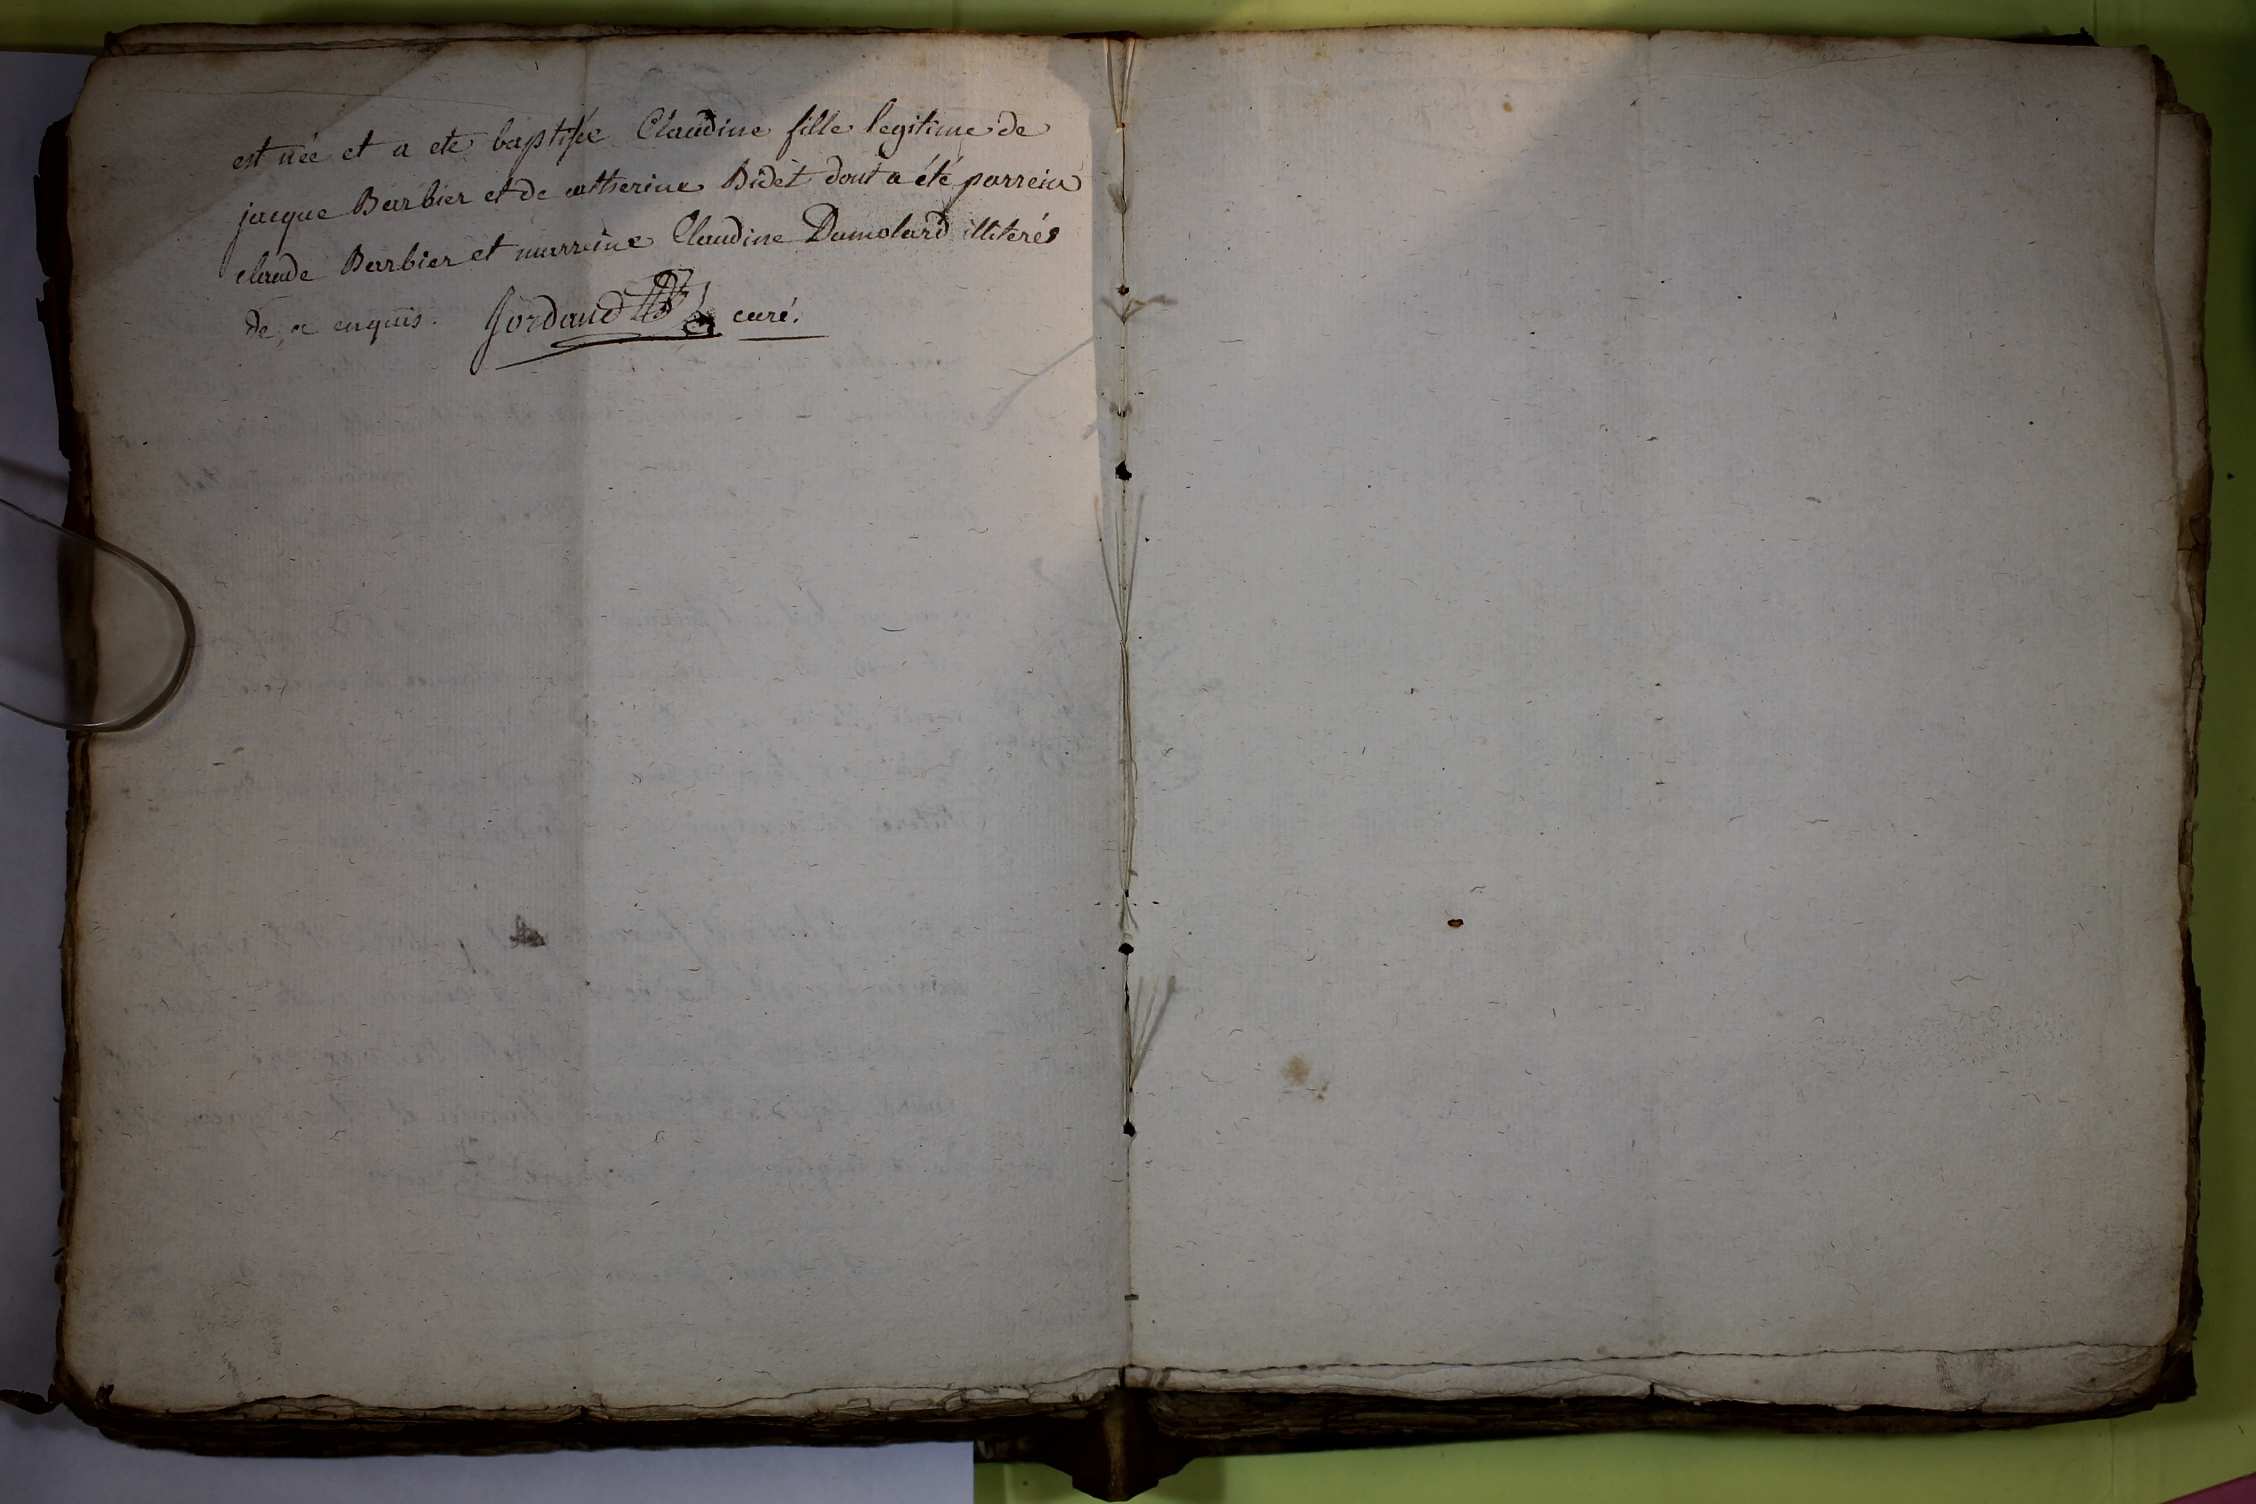 est née et a ete baptisée Claudine fille legitime de
jacque Barbier et de catherine Bidet dont a été parrein
claude Barbier et marreine Claudine Damolard illiterés
de ce enquis. Jordand curé.